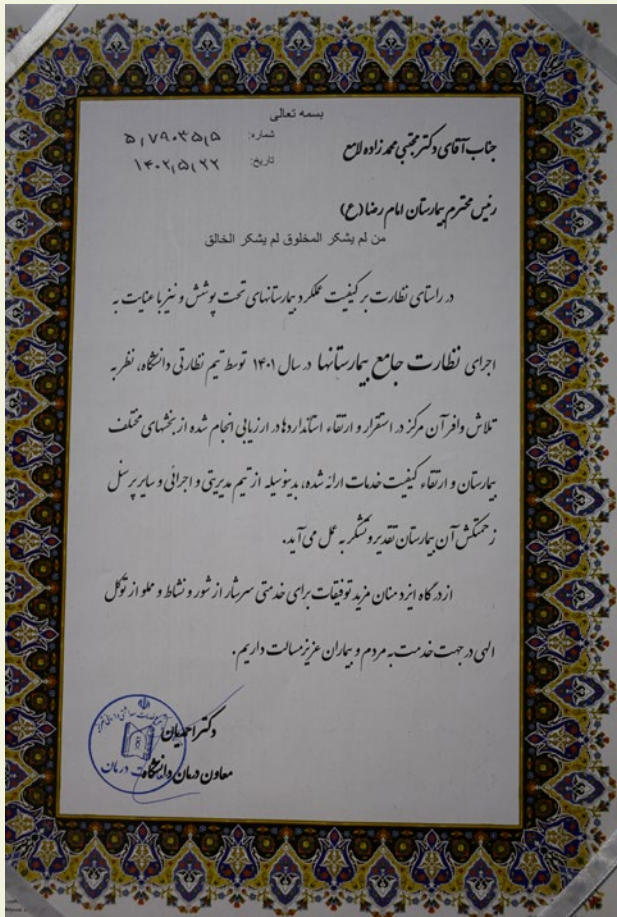 بسمه تعالی
شماره: ۵٫۷۹۰۳۵٫۵
تاریخ: ۱۴۰۲٫۵٫۲۲
جناب آقای دکتر مجتبی محمدزاده لامع
رئیس محترم بیمارستان امام رضا (ع)
من لم یشکر المخلوق لم یشکر الخالق
در راستای نظارت بر کیفیت عملکرد بیمارستانهای تحت پوشش و نیز با عنایت به
اجرای نظارت جامع بیمارستانها در سال ۱۴۰۱ توسط تیم نظارتی دانشگاه، نظر به
تلاش وافر آن مرکز در استقرار و ارتقاء استانداردها در ارزیابی انجام شده از بخشهای مختلف
بیمارستان و ارتقاء کیفیت خدمات ارائه شده، بدینوسیله از تیم مدیریتی و اجرائی و سایر پرسنل
زحمتکش آن بیمارستان تقدیر و تشکر به عمل می آید.
از درگاه ایزد منان مزید توفیقات برای خدمتی سرشار از شور و نشاط و مملو از توکل
الهی در جهت خدمت به مردم و بیماران عزیز مسالت داریم.
دکتر احمدیان
معاون درمان دانشگاه